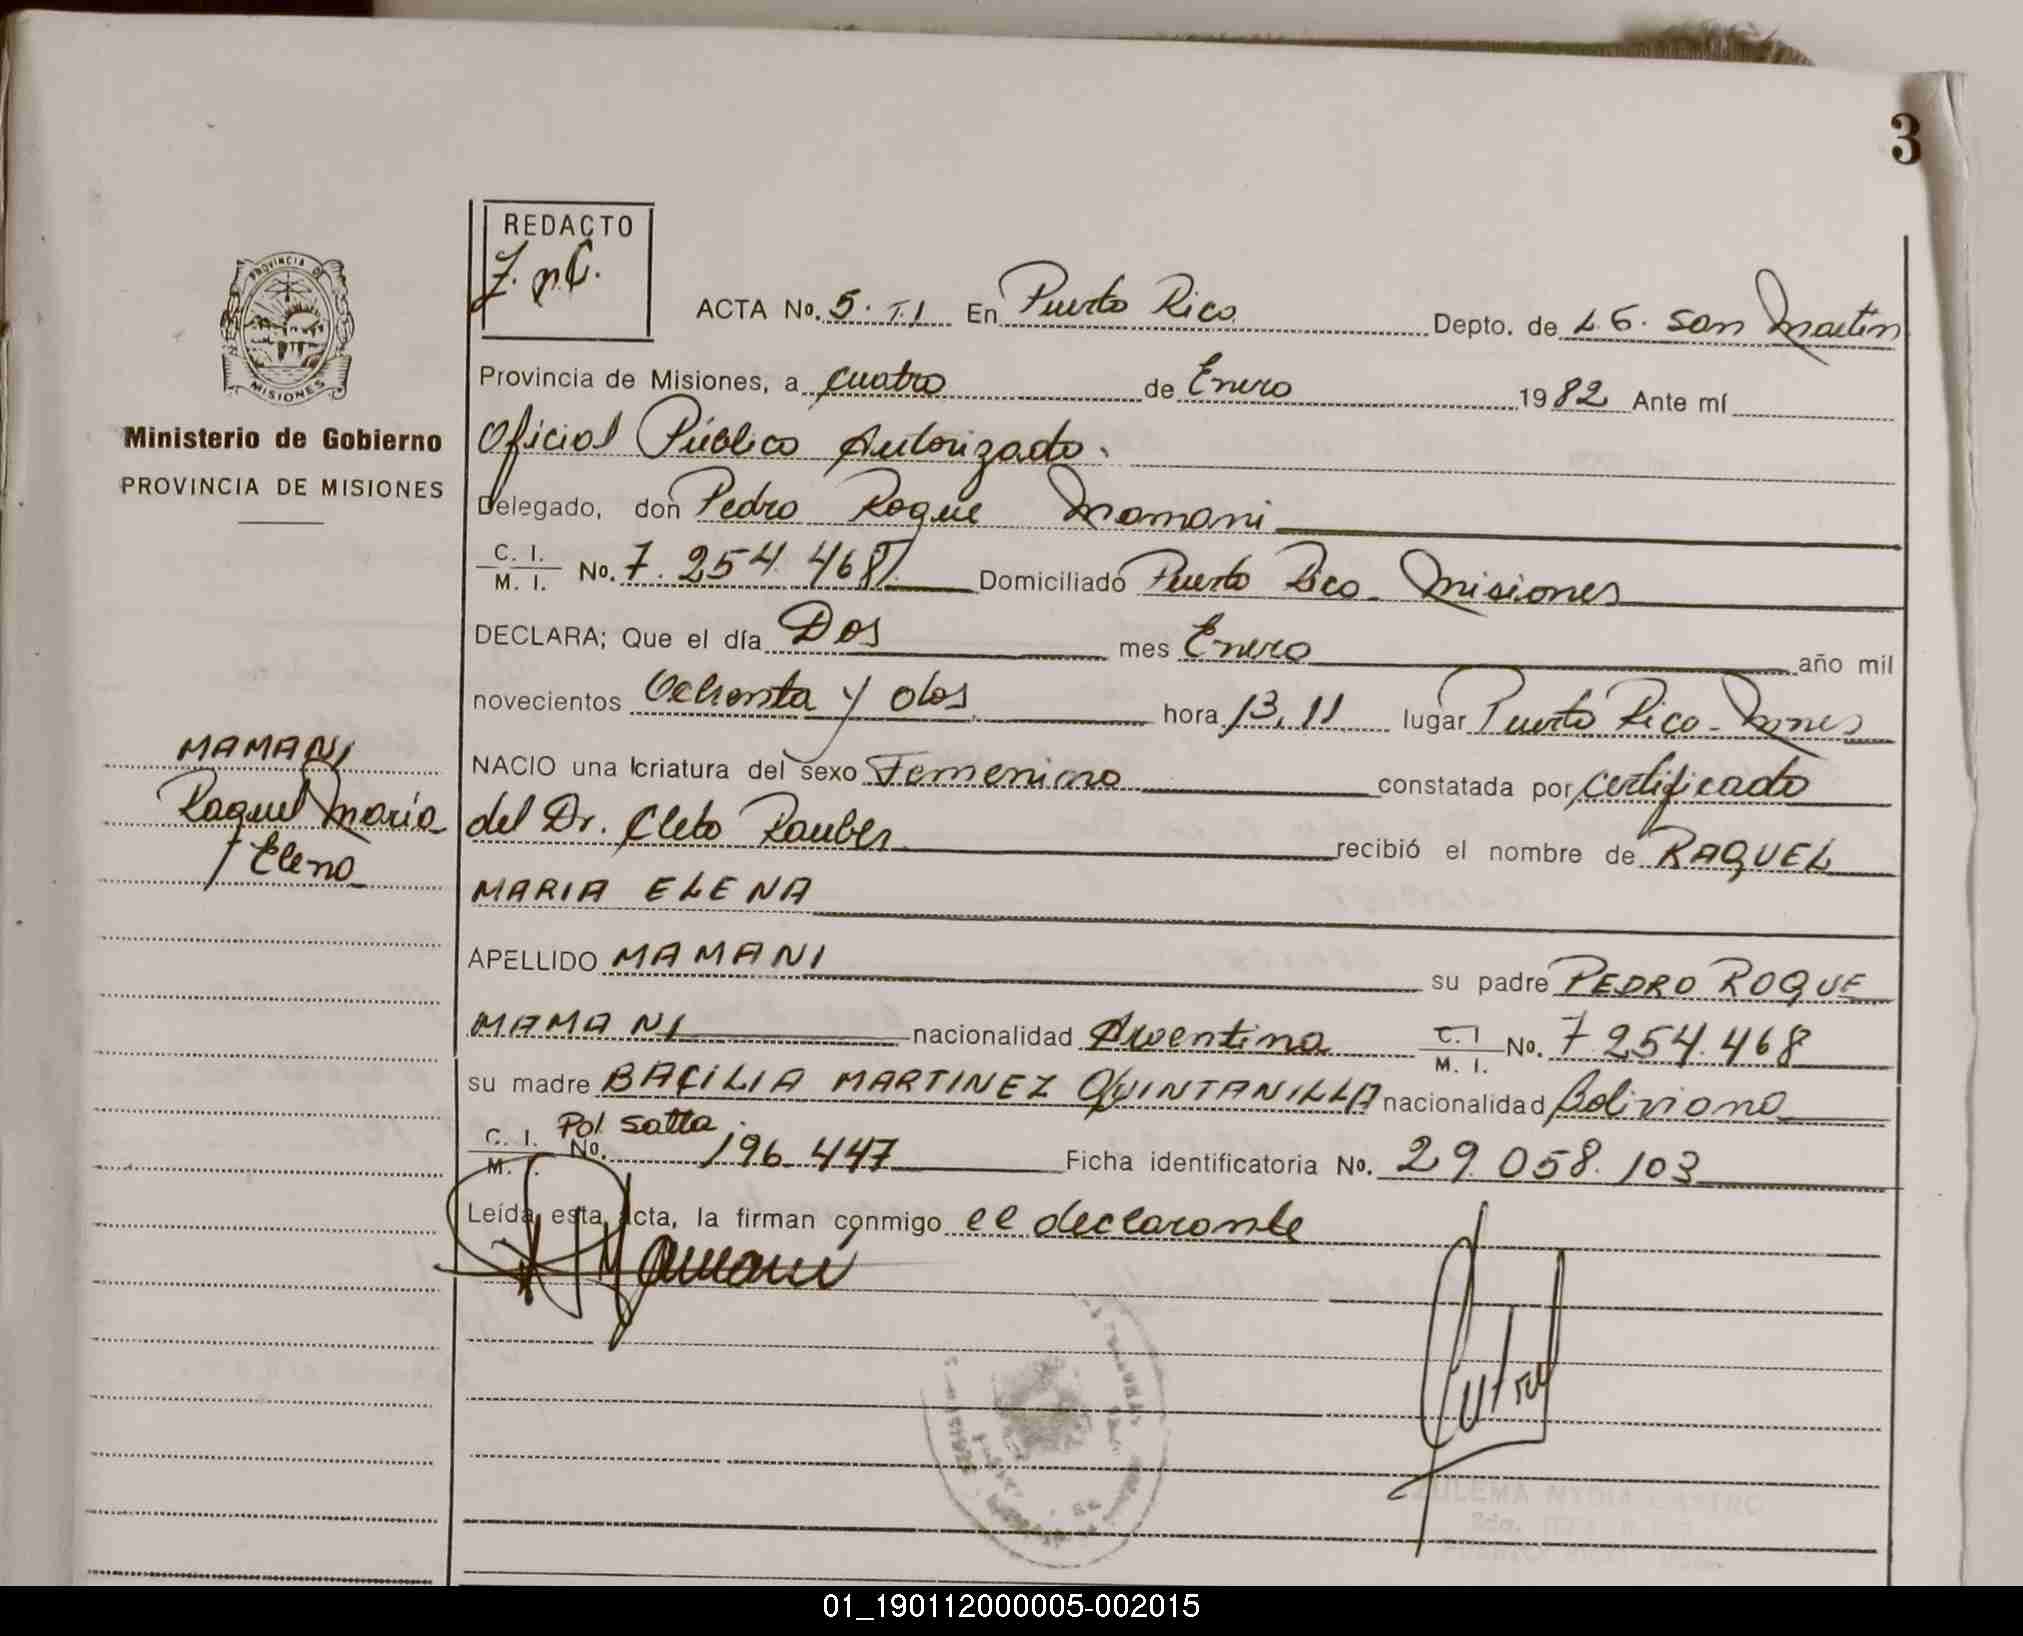 3
REDACTO
Z. n C.
PROVINCIA DE
MISIONES
Ministerio de Gobierno
PROVINCIA DE MISIONES
MAMANI
Raquel María
Elena
ACTA No. 5. T.I En Puerto Rico Depto. de L. G. San Martin
Provincia de Misiones, a cuatro de Enero 1982 Ante mí
Oficial Público Autorizado.
Delegado, don Pedro Roque Mamani
C. I. M. I. No. 7.254.468 Domiciliado Puerto Rico - Misiones
DECLARA; Que el día Dos mes Enero año mil
novecientos Ochenta y dos hora 13,11 lugar Puerto Rico - Mnes
NACIO una criatura del sexo Femenino constatada por certificado
del Dr. Cleto Rauber recibió el nombre de RAQUEL
MARIA ELENA
APELLIDO MAMANI su padre PEDRO ROQUE
MAMANI nacionalidad Argentina C. I M. I. No. 7.254.468
su madre BACILIA MARTINEZ QUINTANILLA nacionalidad Boliviana
C. I. M. I. No. Pol. Salta 196.447 Ficha identificatoria No. 29.058.103
Leída esta acta, la firman conmigo el declarante
Mamani
ZULEMA NYDIA CASTRO
01_190112000005-002015